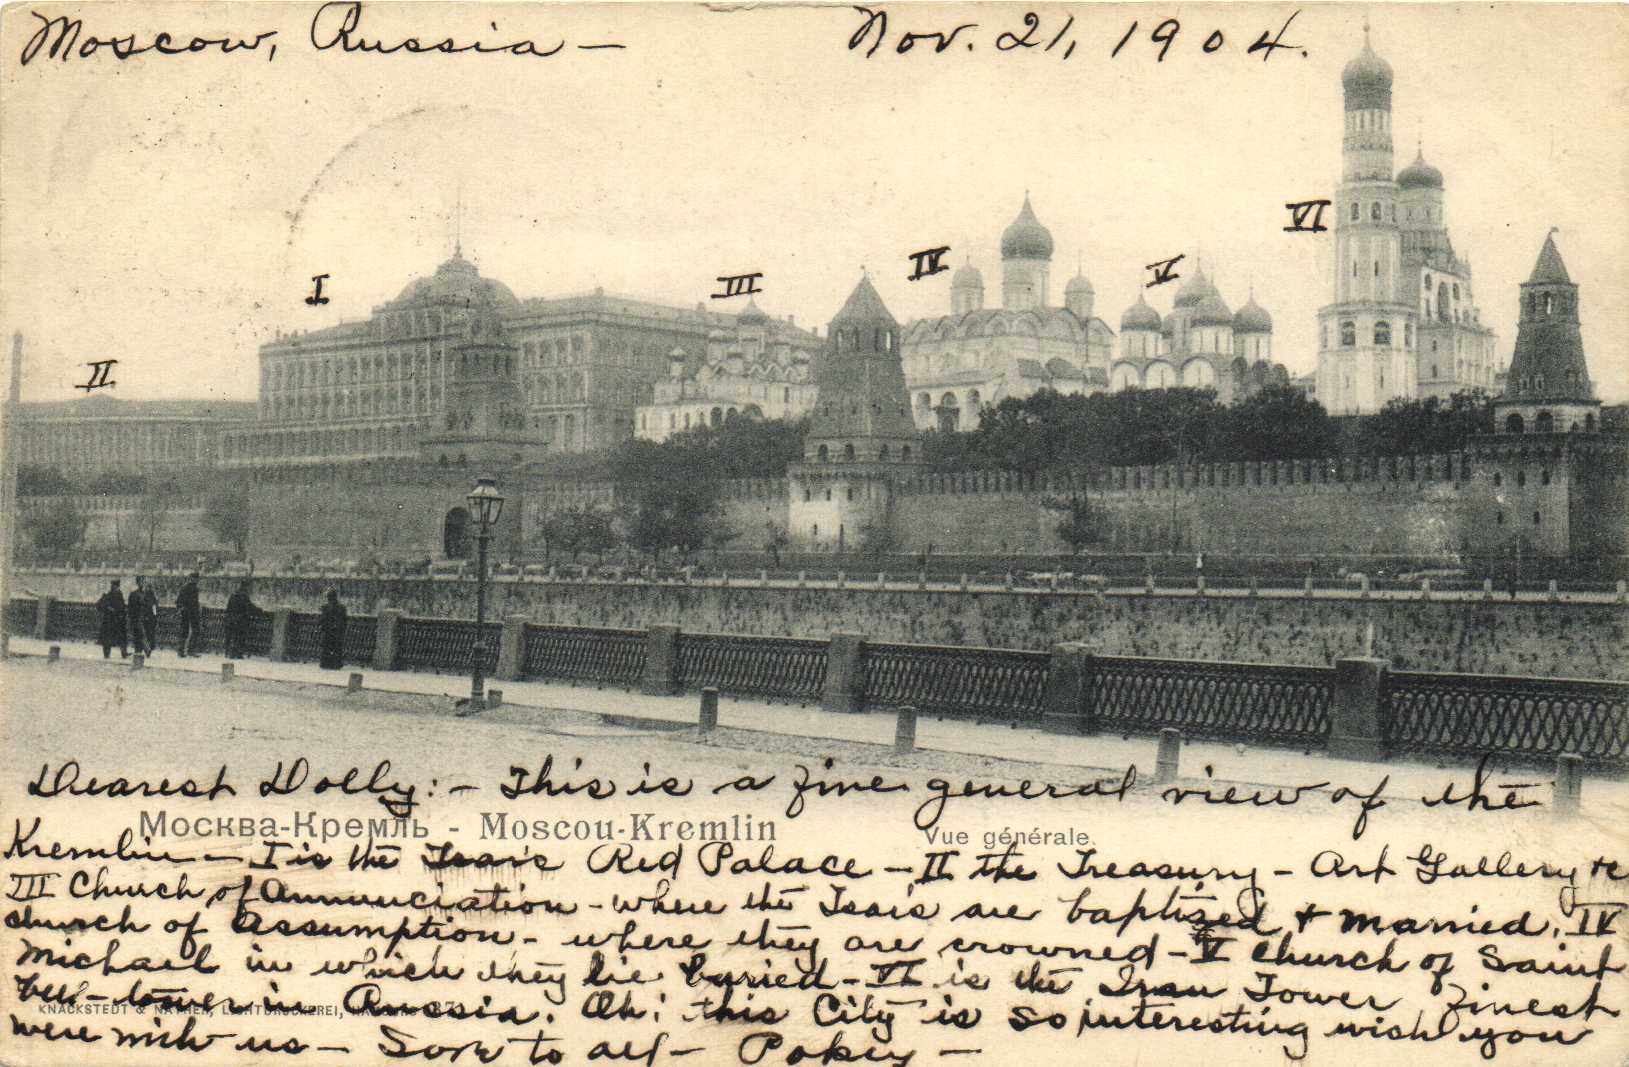 Moscow, Russia — Nov. 21, 1904.
I
II
III
IV
V
VI
Dearest Dolly:- This is a fine general view of the
Москва-Кремль - Moscou-Kremlin Vue générale.
Kremlin — I is the Tsar's Red Palace — II the Treasury - Art Gallery &c
III Church of Annunciation - where the Tsars are baptized & married. IV
church of Assumption - where they are crowned - V Church of Saint
Michael in which they lie buried - VI is the Ivan Tower finest
bell-tower in Russia. Oh! this City is so interesting wish you
KNACKSTEDT & NÄTHER, LICHTDRUCKEREI,
were with us — to all — Pokey —